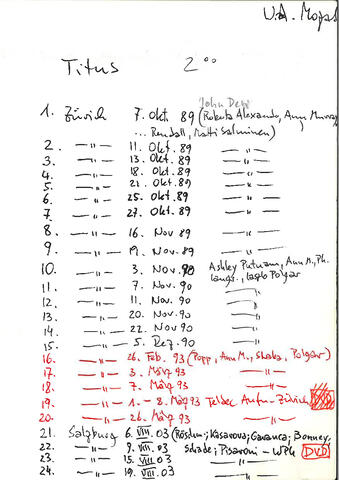 U.A. Mozart
Titus 2°°
John Dew
1. Zürich 7. Okt 89 (Roberta Alexander, Ann Murray,
... Rendall, Matti Salminen)
2. —"— 11. Okt. 89 —"—
3. —"— 13. Okt. 89 —"—
4. —"— 18. Okt 89 —"—
5. —"— 21. Okt. 89 —"—
6. —"— 25. Okt 89 —"—
7. —"— 27. Okt 89 —"—
8. —"— 16. Nov 89 —"—
9. —"— 19. Nov. 89 —"—
10. —"— 3. Nov. 90 Ashley Putnam, Ann M., Ph.
Langr., Laszlo Polgar
11. —"— 7. Nov. 90 —"—
12. —"— 11. Nov 90 —"—
13. —"— 20. Nov. 90 —"—
14. —"— 22. Nov 90 —"—
15. —"— 5. Dez. 90 —"—
16. —"— 26. Feb. 93 (Popp, Ann M., Polgar)
17. —"— 3. März 93 —"—
18. —"— 7. März 93 —"—
19. —"— 1. - 8. März 93 Teldec Aufn. Zürich
20. —"— 26. März 93 —"—
21. Salzburg 6. VIII. 03 (Röschm; Kasarova; Garanca; Bonney,
22. —"— 9. VIII. 03 Schade; Pisaroni - WPh DVD
23. —"— 15. VIII. 03 —"—
24. —"— 19. VIII. 03 —"—